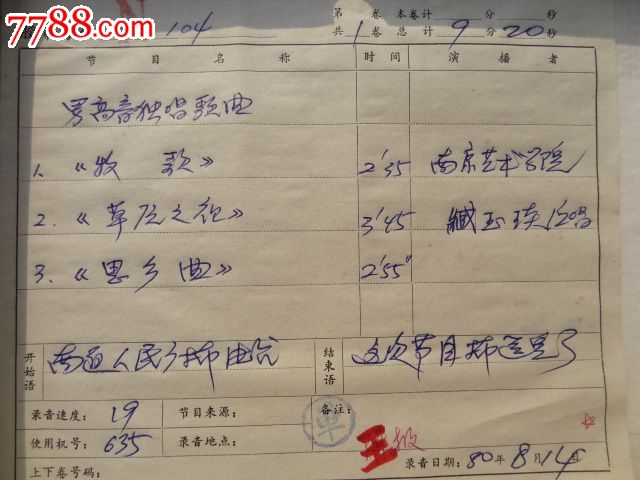 7788.com
N 104
第 卷 本卷计 分 秒
共 1 卷 总 计 9 分 20 秒
节 目 名 称 时 间 演 播 者
男高音独唱歌曲
1. 《牧 歌》 2'35 南京艺术学院
2. 《草原之夜》 3'45 臧玉琰演唱
3. 《思乡曲》 2'55"
开始语 南通人民广播电台 结束语 这次节目播送完了
录音速度： 19 节目来源： 备注：
单
使用机号： 635 录音地点： 录音日期： 80 年 8 月 14 日
上下卷号码：